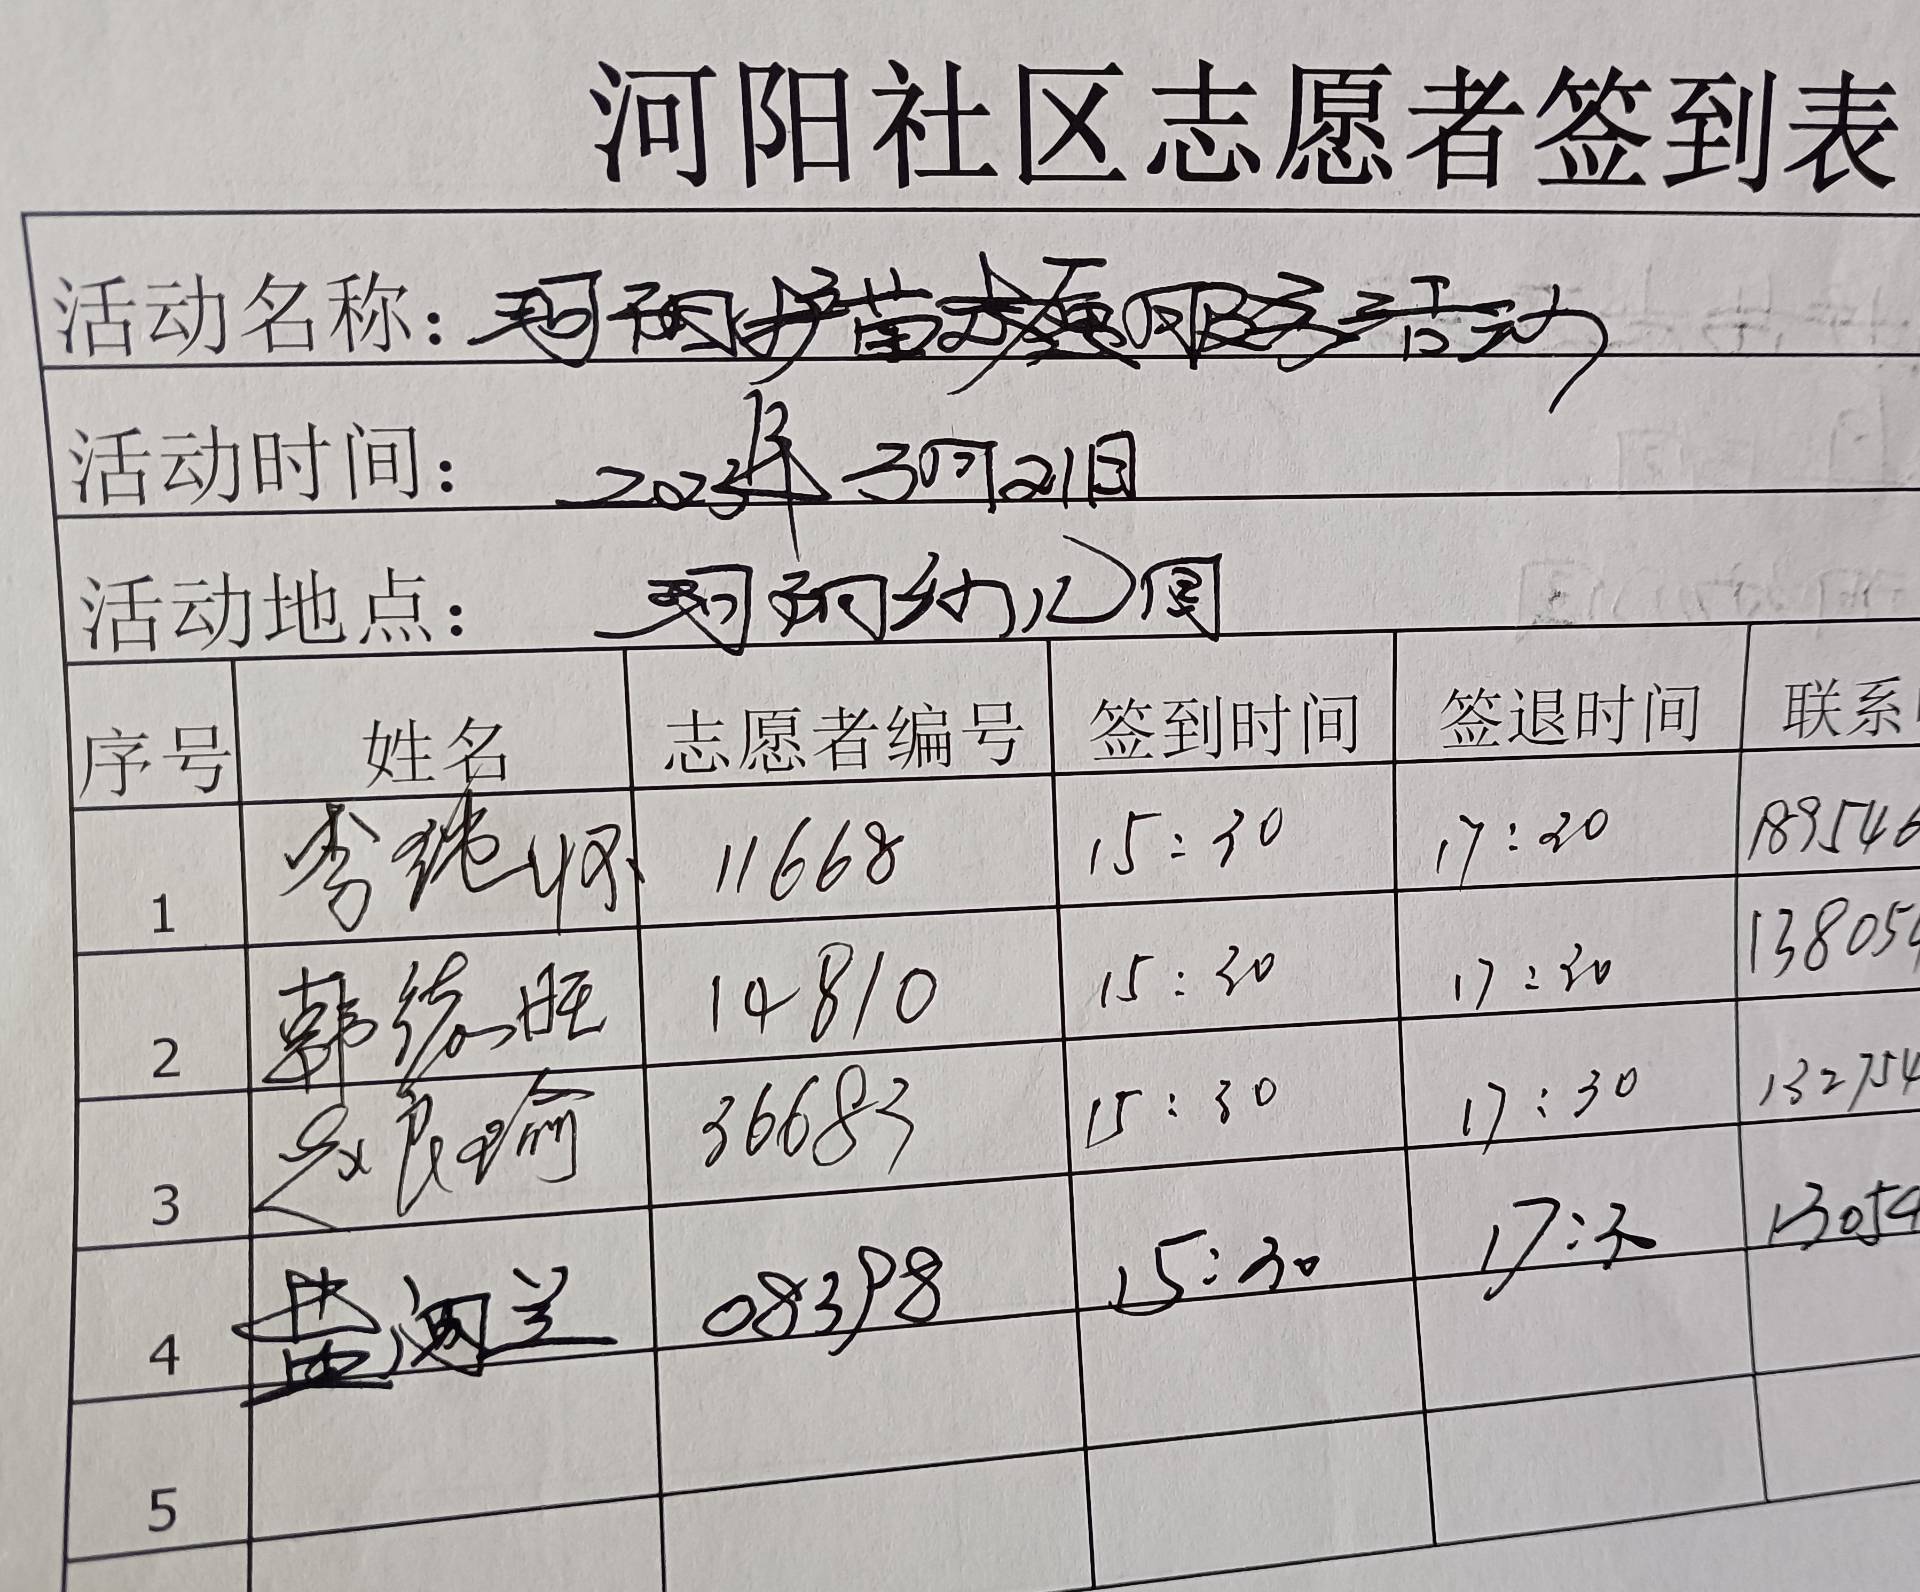 河阳社区志愿者签到表
活动名称：护苗服务活动
活动时间：2023年3月21日
活动地点：幼儿园
序号 姓名 志愿者编号 签到时间 签退时间 联系
1 李纯 11668 15:30 17:30 189546
2 韩德旺 14810 15:30 17:30 138054
3 良瑜 36683 15:30 17:30 132754
4 兰 08398 15:30 17:30 13054
5